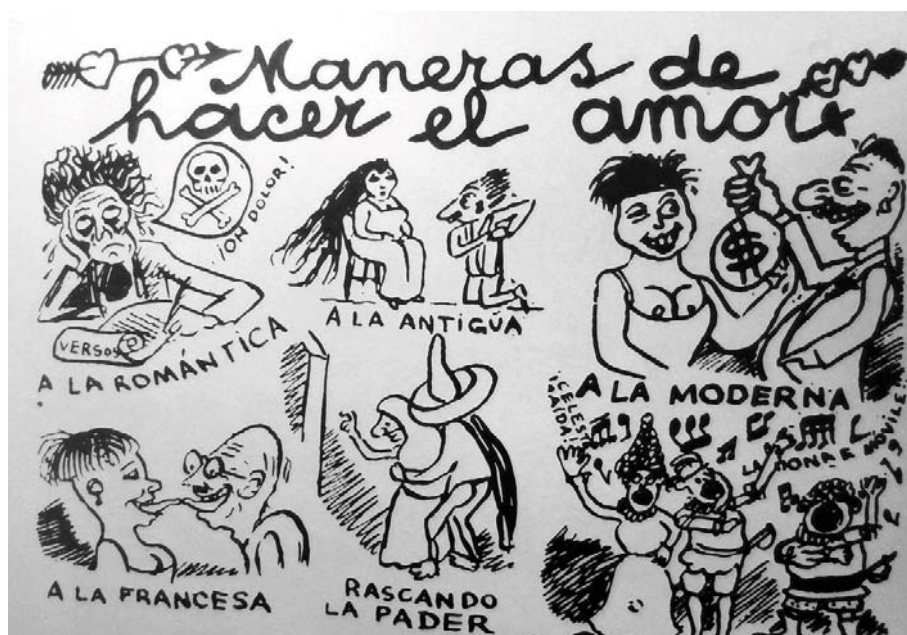 Maneras de
hacer el amor
¡OH DOLOR!
VERSOS
A LA ROMÁNTICA
A LA ANTIGÜA
$
A LA MODERNA
A LA FRANCESA
RASCANDO
LA PADER
¡CELESTE
AÍDA!
LA DONA E MOVILE